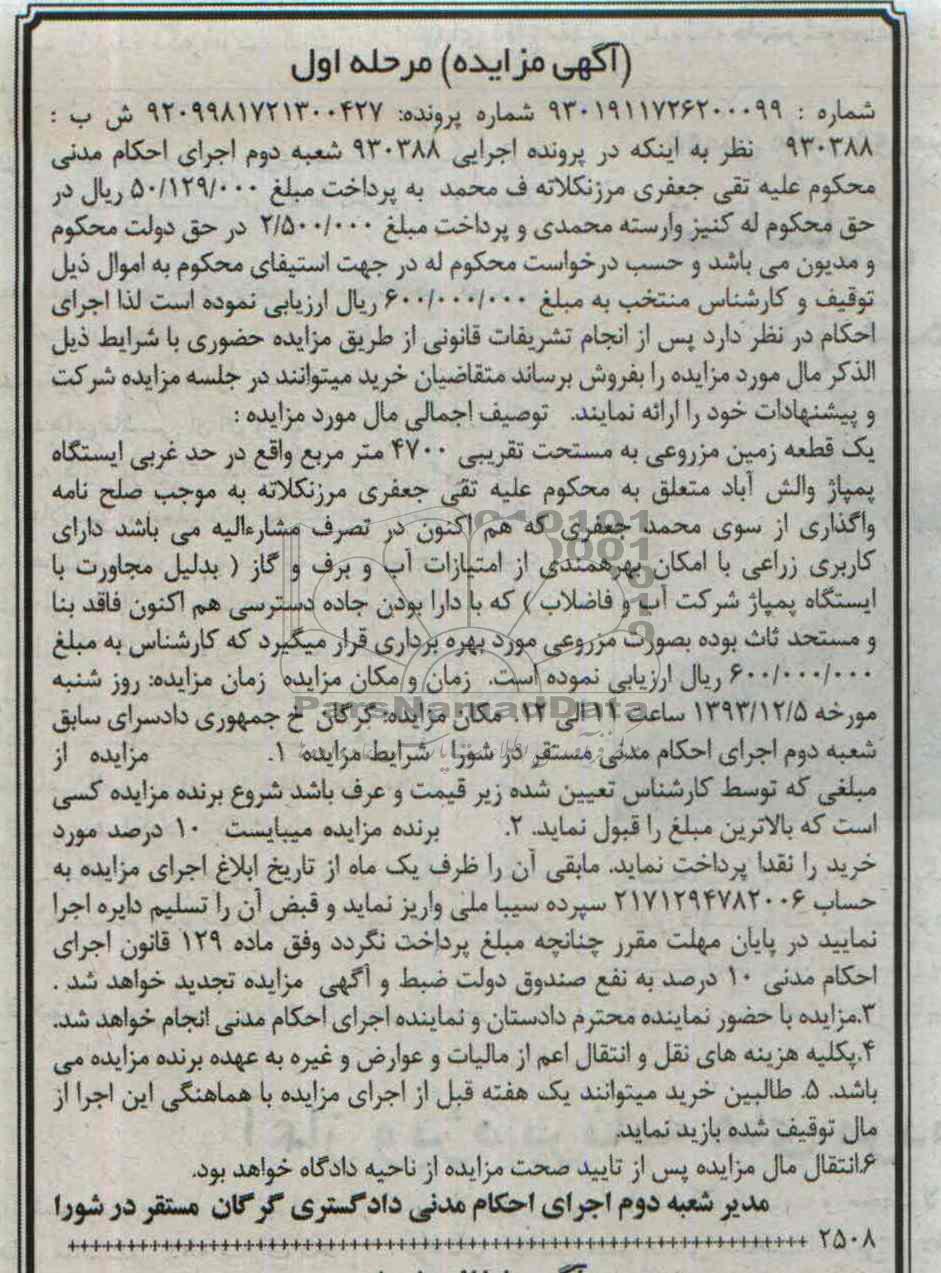 (آگهی مزایده) مرحله اول
شماره : ۹۳۰۱۹۱۱۷۲۶۲۰۰۰۹۹ شماره پرونده: ۹۲۰۹۹۸۱۷۲۱۳۰۰۴۲۷ ش ب :
۹۳۰۳۸۸ نظر به اینکه در پرونده اجرایی ۹۳۰۳۸۸ شعبه دوم اجرای احکام مدنی
محکوم علیه تقی جعفری مرزنکلاته ف محمد به پرداخت مبلغ ۵۰/۱۲۹/۰۰۰ ریال در
حق محکوم له کنیز وارسته محمدی و پرداخت مبلغ ۲/۵۰۰/۰۰۰ در حق دولت محکوم
و مدیون می باشد و حسب درخواست محکوم له در جهت استیفای محکوم به اموال ذیل
توقیف و کارشناس منتخب به مبلغ ۶۰۰/۰۰۰/۰۰۰ ریال ارزیابی نموده است لذا اجرای
احکام در نظر دارد پس از انجام تشریفات قانونی از طریق مزایده حضوری با شرایط ذیل
الذکر مال مورد مزایده را بفروش برساند متقاضیان خرید میتوانند در جلسه مزایده شرکت
و پیشنهادات خود را ارائه نمایند. توصیف اجمالی مال مورد مزایده :
یک قطعه زمین مزروعی به مستحت تقریبی ۴۷۰۰ متر مربع واقع در حد غربی ایستگاه
پمپاژ والش آباد متعلق به محکوم علیه تقی جعفری مرزنکلاته به موجب صلح نامه
واگذاری از سوی محمد جعفری که هم اکنون در تصرف مشارءالیه می باشد دارای
کاربری زراعی با امکان بهرهمندی از امتیازات آب و برف و گاز ( بدلیل مجاورت با
ایستگاه پمپاژ شرکت آب و فاضلاب ) که با دارا بودن جاده دسترسی هم اکنون فاقد بنا
و مستحد ثاث بوده بصورت مزروعی مورد بهره برداری قرار میگیرد که کارشناس به مبلغ
۶۰۰/۰۰۰/۰۰۰ ریال ارزیابی نموده است. زمان و مکان مزایده زمان مزایده: روز شنبه
مورخه ۱۳۹۳/۱۲/۵ ساعت ۱۱ الی ۱۲. مکان مزایده: گرگان خ جمهوری دادسرای سابق
شعبه دوم اجرای احکام مدنی مستقر در شورا شرایط مزایده ۱. مزایده از
مبلغی که توسط کارشناس تعیین شده زیر قیمت و عرف باشد شروع برنده مزایده کسی
است که بالاترین مبلغ را قبول نماید. ۲. برنده مزایده میبایست ۱۰ درصد مورد
خرید را نقدا پرداخت نماید. مابقی آن را ظرف یک ماه از تاریخ ابلاغ اجرای مزایده به
حساب ۲۱۷۱۲۹۴۷۸۲۰۰۶ سپرده سیبا ملی واریز نماید و قبض آن را تسلیم دایره اجرا
نمایید در پایان مهلت مقرر چنانچه مبلغ پرداخت نگردد وفق ماده ۱۲۹ قانون اجرای
احکام مدنی ۱۰ درصد به نفع صندوق دولت ضبط و آگهی مزایده تجدید خواهد شد .
۳.مزایده با حضور نماینده محترم دادستان و نماینده اجرای احکام مدنی انجام خواهد شد.
۴.پکلیه هزینه های نقل و انتقال اعم از مالیات و عوارض و غیره به عهده برنده مزایده می
باشد. ۵. طالبین خرید میتوانند یک هفته قبل از اجرای مزایده با هماهنگی این اجرا از
مال توقیف شده بازید نماید.
۶.انتقال مال مزایده پس از تایید صحت مزایده از ناحیه دادگاه خواهد بود.
مدیر شعبه دوم اجرای احکام مدنی دادگستری گرگان مستقر در شورا
۲۵۰۸
ParsNamadData